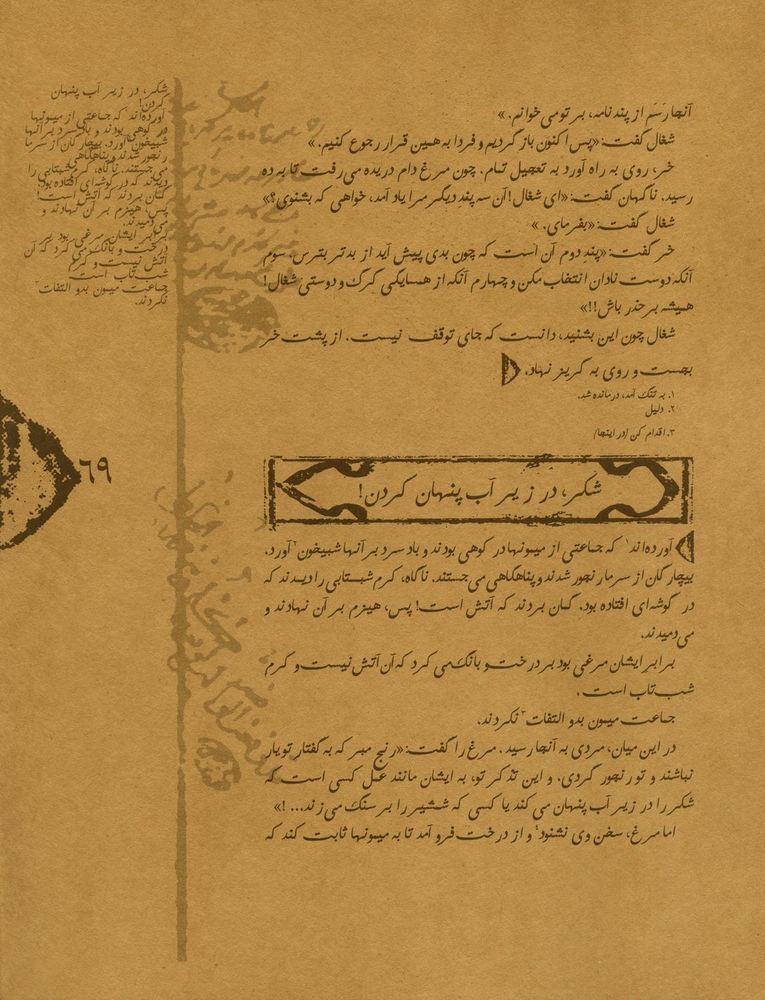 آنجا رسَم از پندنامه، بر تو می خوانم.»
شغال گفت: «پس اکنون باز گردیم و فردا به همین قرار رجوع کنیم.»
خر، روی به راه آورد به تعجیل تمام. چون مرغ دام دریده می رفت تا به ده
رسید. ناگهان گفت: «ای شغال! آن سه پند دیگر مرا یاد آمد، خواهی که بشنوی؟»
شغال گفت: «بفرمای.»
خر گفت: «پندِ دوم آن است که چون بدی پیش آید از بدتر بترس، سوم
آنکه دوست نادان انتخاب مکن و چهارم آنکه از همسایگی گرگ و دوستی شغال!
همیشه بر حذر باش!!»
شغال چون این بشنید، دانست که جای توقف نیست. از پشت خر
بجست و روی به گریز نهاد.
۱. به تنگ آمد، درمانده شد.
۲. دلیل
۳. اقدام کن (در اینجا)
شکر، در زیر آب پنهان کردن!
آورده‌اند۱ که جماعتی از میمونها در کوهی بودند و باد سرد بر آنها شبیخون۲ آورد.
بیچارگان از سرما رنجور شدند و پناهگاهی می جستند. ناگاه، کرم شبتابی را دیدند که
در گوشه‌ای افتاده بود. گمان بردند که آتش است! پس، هیزم بر آن نهادند و
می دمیدند.
برابر ایشان مرغی بود بر درخت و بانگ می کرد که آن آتش نیست و کرم
شب تاب است.
جماعت میمون بدو التفات۳ نکردند.
در این میان، مردی به آنجا رسید. مرغ را گفت: «رنج مبر که به گفتار تو یار
نباشند و تو رنجور گردی. و این تذکر تو، به ایشان مانند عمل کسی است که
شکر را در زیر آب پنهان می کند یا کسی که شمشیر را بر سنگ می زند... !»
اما مرغ، سخن وی نشنود۴ و از درخت فرو آمد تا به میمونها ثابت کند که
شکر، در زیر آب پنهان
کردن!
آورده‌اند که جماعتی از میمونها
در کوهی بودند و باد سرد بر آنها
شبیخون آورد. بیچارگان از سرما
رنجور شدند و پناهگاهی
می جستند. ناگاه، کرم شبتابی را
دیدند که در گوشه‌ای افتاده بود.
گمان بردند که آتش است!
پس، هیزم بر آن نهادند و
می دمیدند.
برابر ایشان مرغی بود بر
درخت و بانگ می کرد که آن
آتش نیست و کرم
شب تاب است.
جماعت میمون بدو التفات
نکردند.
۶۹